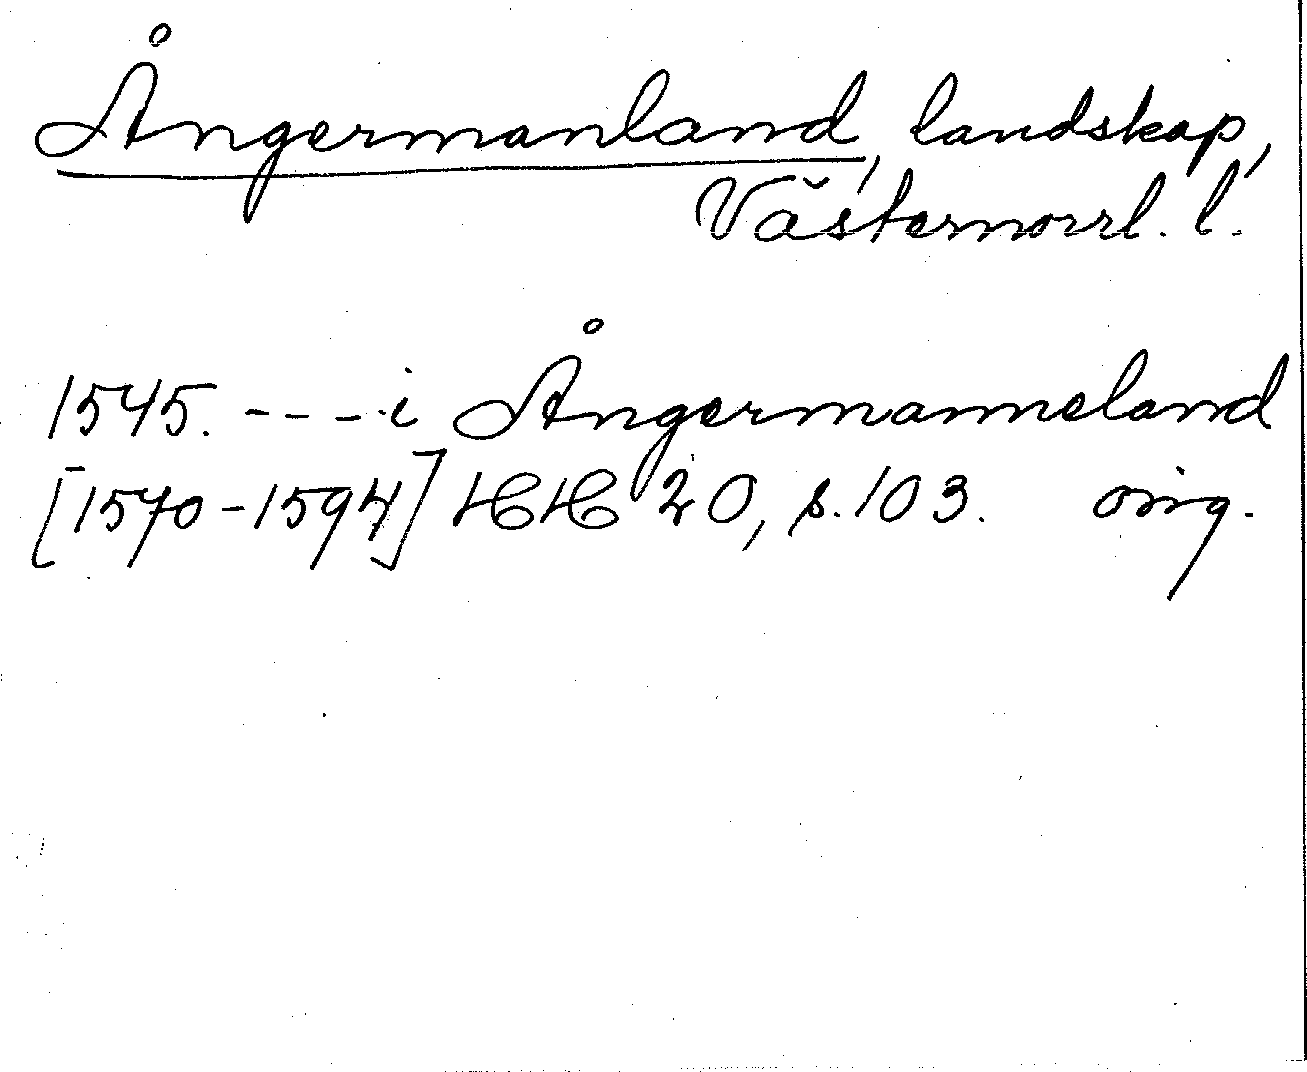 Ångermanland, landskap,
Västernorrl. l.
1545. - - - i Ångermanneland
[1570-1594] HH 20, s. 103. orig.